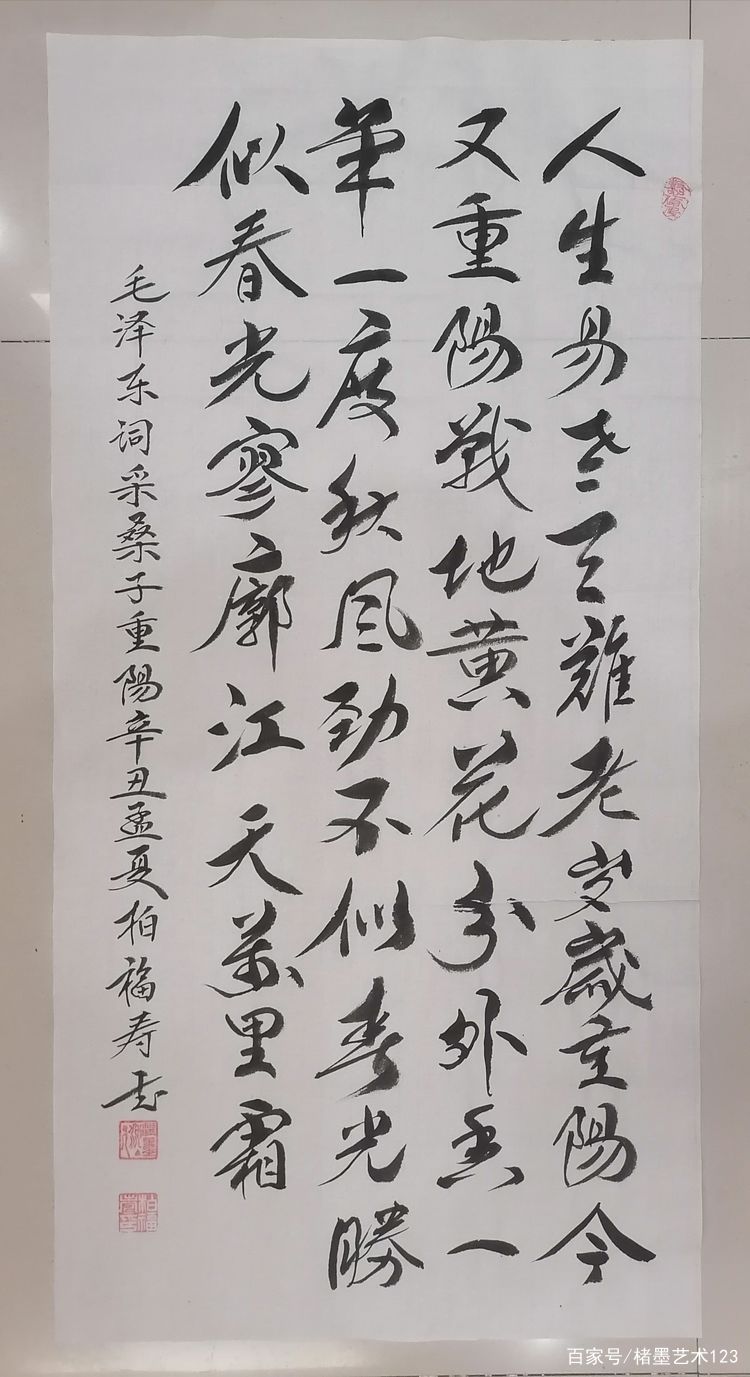 人生易老天難老岁歲重陽今
又重陽戰地黄花分外香一
年一度秋风劲不似春光勝
似春光寥廓江天萬里霜
毛泽东词采桑子重陽辛丑孟夏柏福寿书
百家号/楮墨艺术123